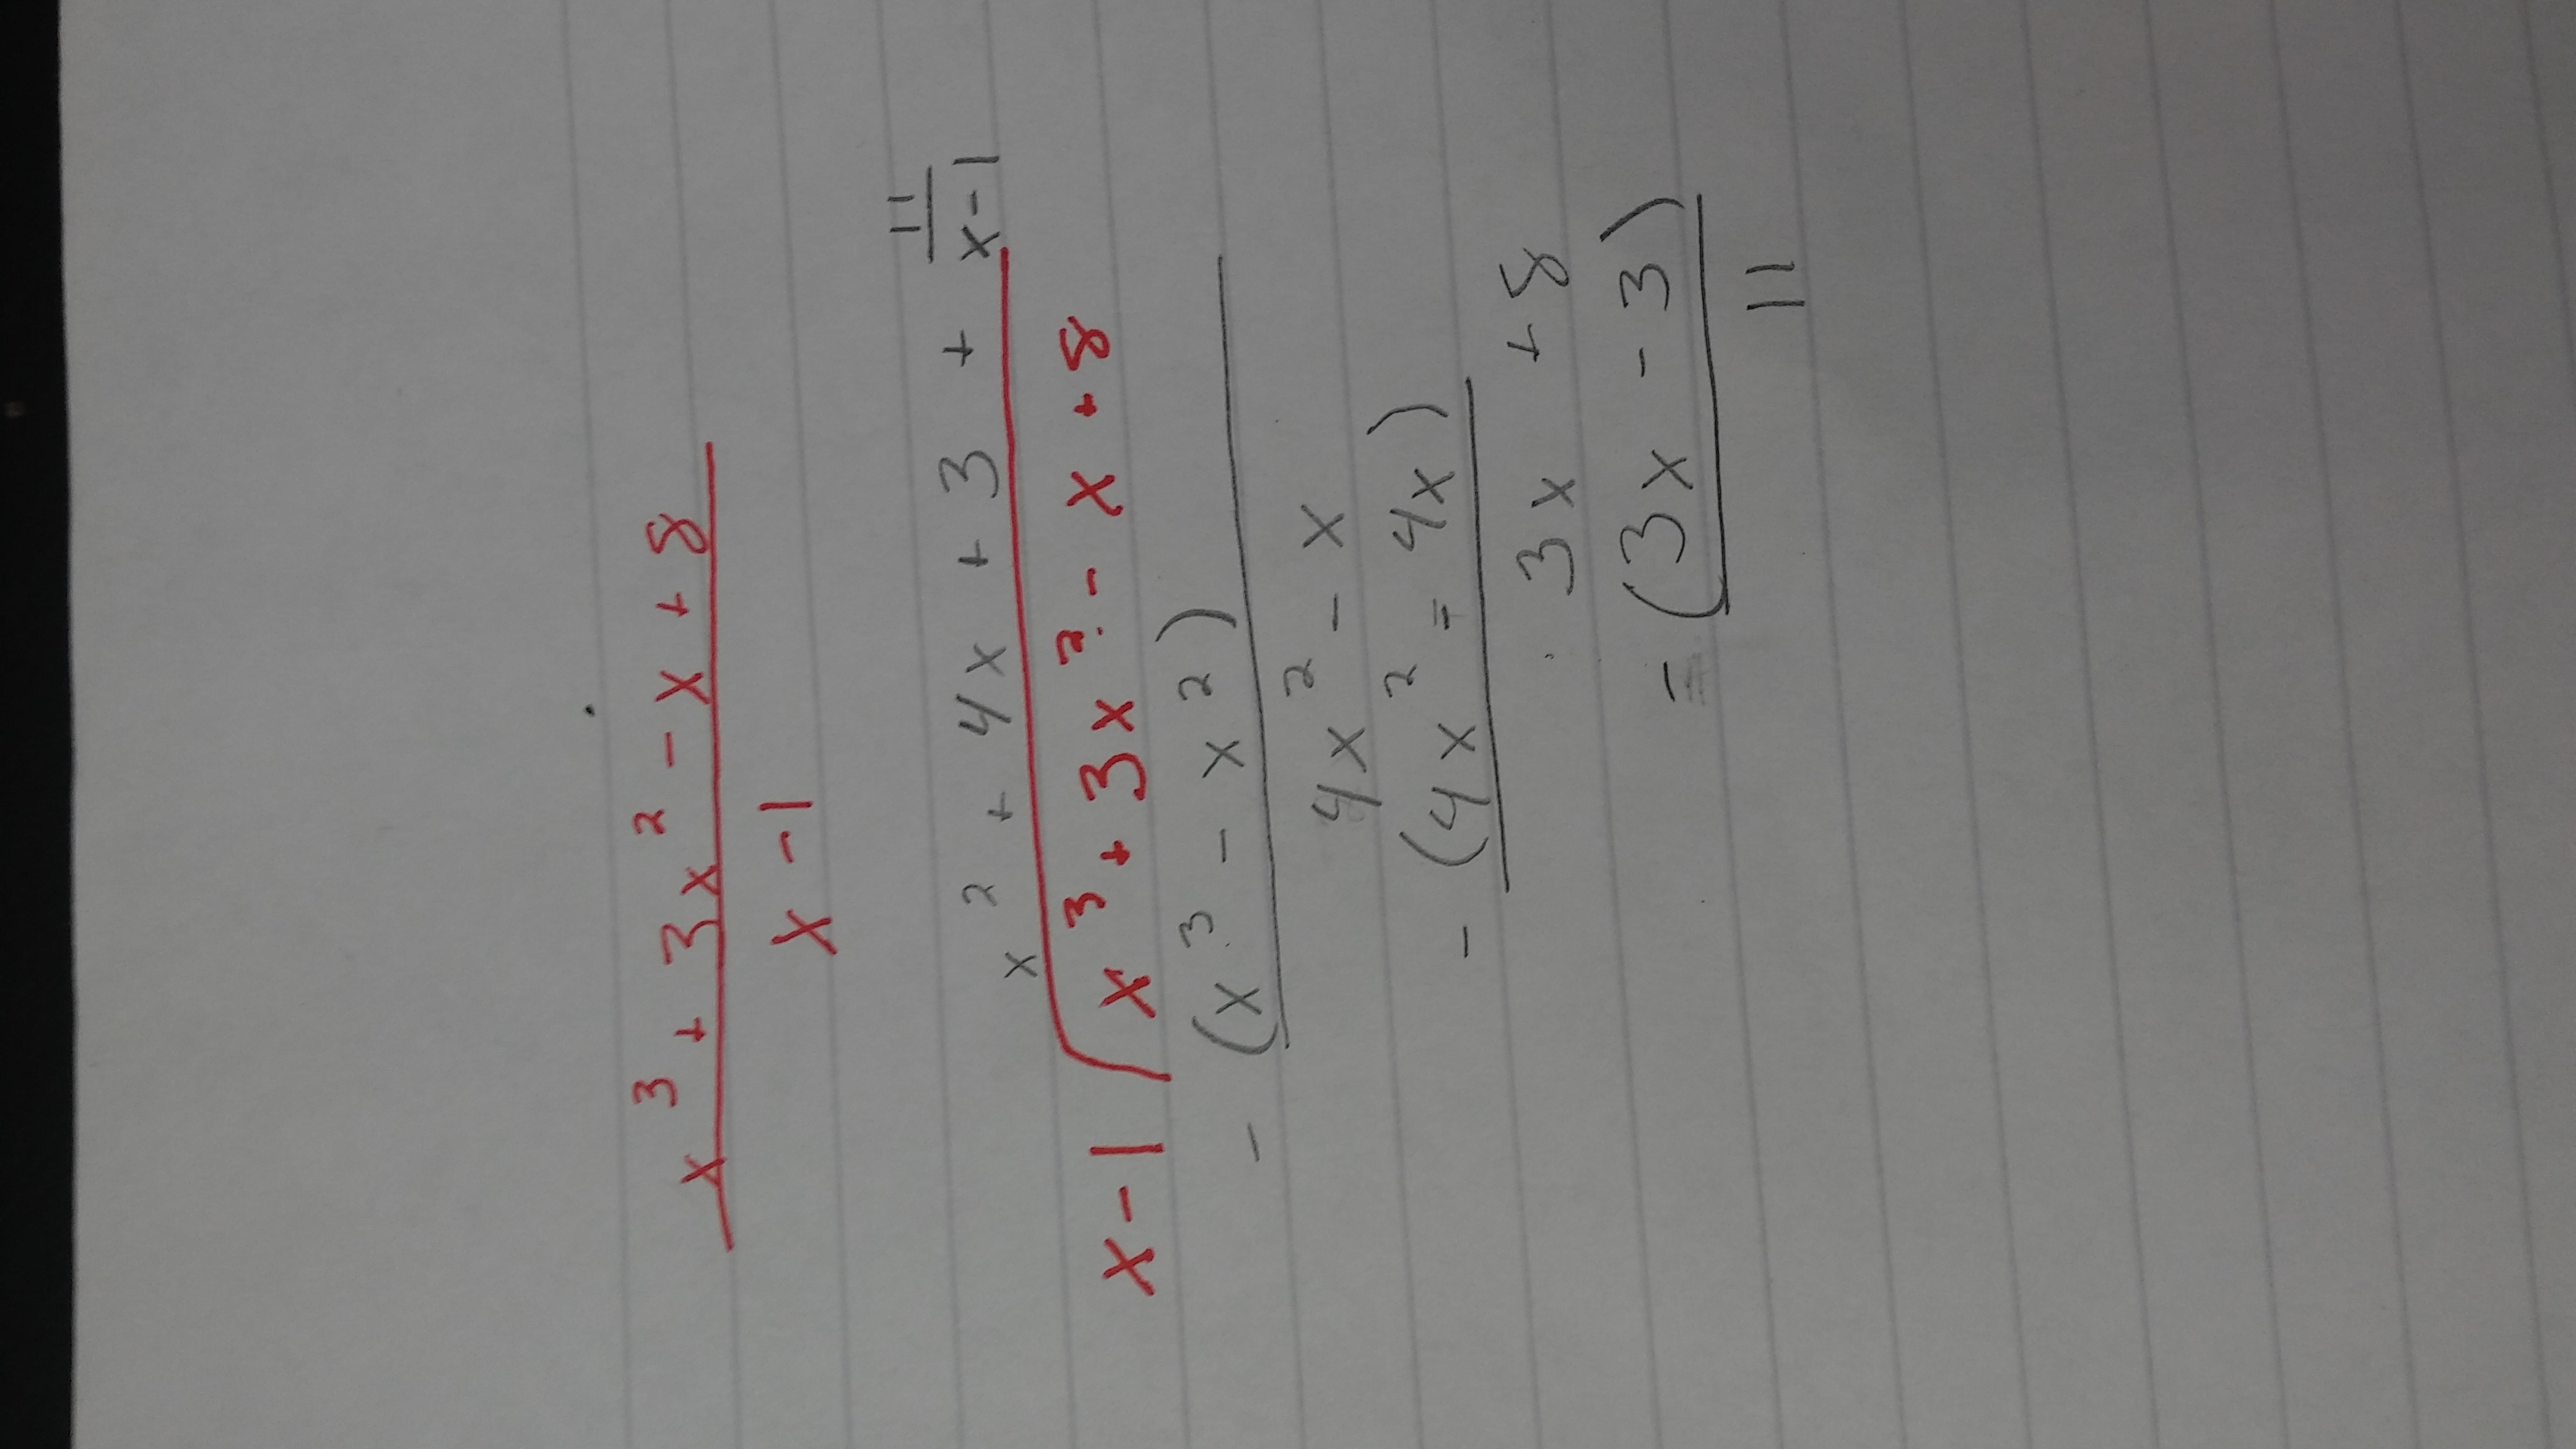 x³ + 3x² - x + 8
x - 1
11
x² + 4x + 3 + x-1
x-1 x³ + 3x² - x + 8
- (x³ - x²)
4x² - x
- (4x² = 4x)
3x + 8
- (3x - 3)
11